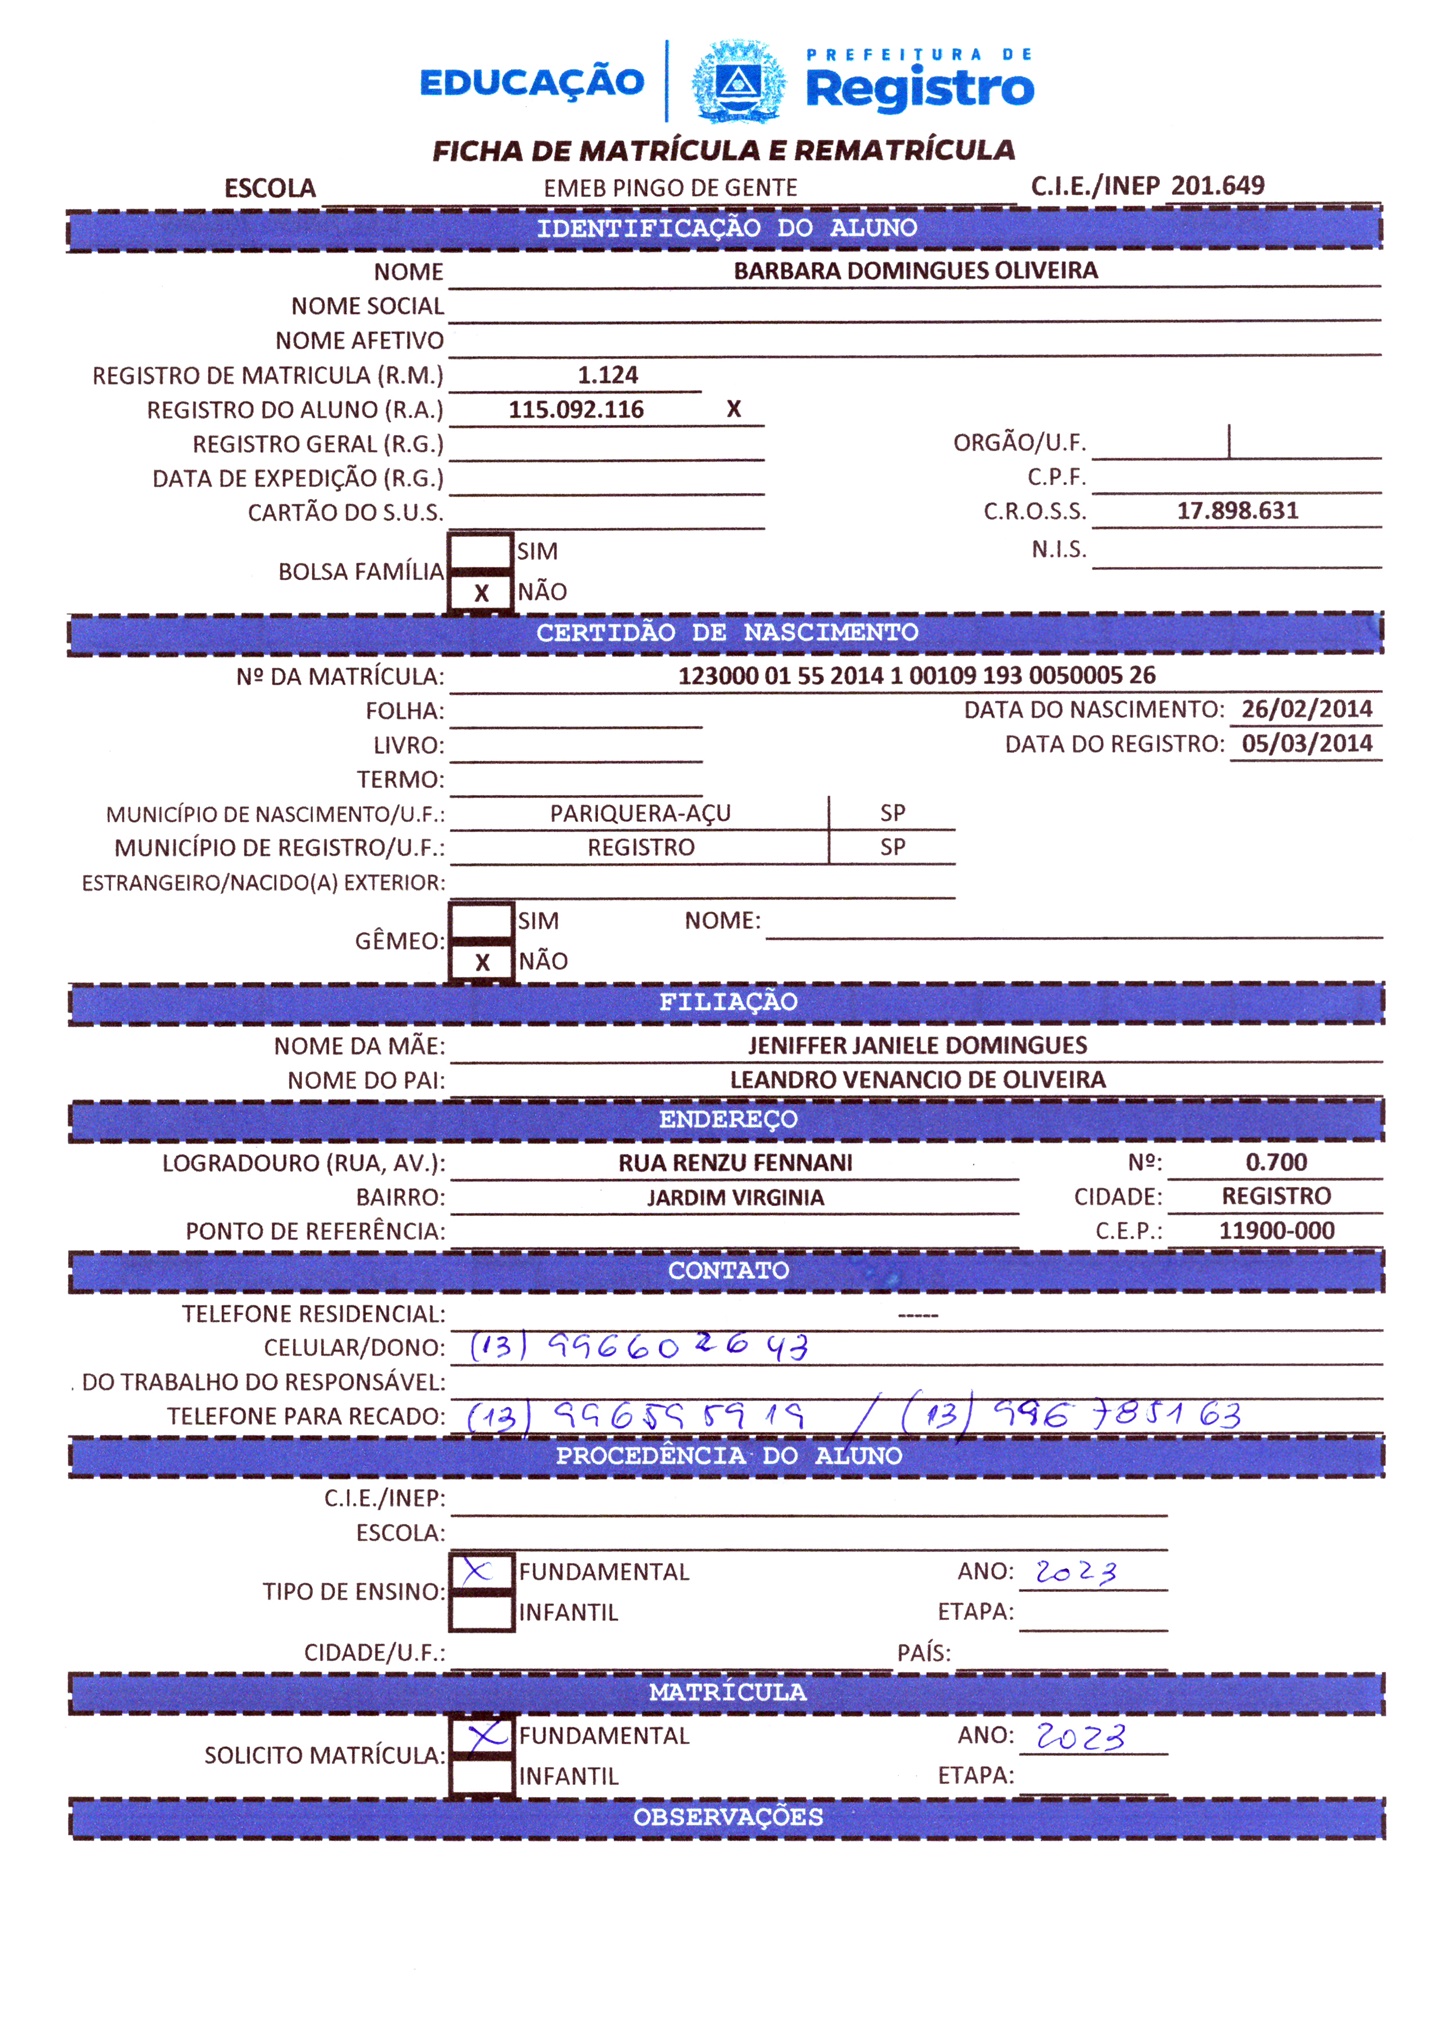 EDUCAÇÃO
PREFEITURA DE
Registro
FICHA DE MATRÍCULA E REMATRÍCULA
ESCOLA EMEB PINGO DE GENTE C.I.E./INEP 201.649
IDENTIFICAÇÃO DO ALUNO
NOME BARBARA DOMINGUES OLIVEIRA
NOME SOCIAL
NOME AFETIVO
REGISTRO DE MATRICULA (R.M.) 1.124
REGISTRO DO ALUNO (R.A.) 115.092.116 X
REGISTRO GERAL (R.G.) ORGÃO/U.F.
DATA DE EXPEDIÇÃO (R.G.) C.P.F.
CARTÃO DO S.U.S. C.R.O.S.S. 17.898.631
SIM N.I.S.
BOLSA FAMÍLIA
X NÃO
CERTIDÃO DE NASCIMENTO
Nº DA MATRÍCULA: 123000 01 55 2014 1 00109 193 0050005 26
FOLHA: DATA DO NASCIMENTO: 26/02/2014
LIVRO: DATA DO REGISTRO: 05/03/2014
TERMO:
MUNICÍPIO DE NASCIMENTO/U.F.: PARIQUERA-AÇU SP
MUNICÍPIO DE REGISTRO/U.F.: REGISTRO SP
ESTRANGEIRO/NACIDO(A) EXTERIOR:
SIM NOME:
GÊMEO:
X NÃO
FILIAÇÃO
NOME DA MÃE: JENIFFER JANIELE DOMINGUES
NOME DO PAI: LEANDRO VENANCIO DE OLIVEIRA
ENDEREÇO
LOGRADOURO (RUA, AV.): RUA RENZU FENNANI Nº: 0.700
BAIRRO: JARDIM VIRGINIA CIDADE: REGISTRO
PONTO DE REFERÊNCIA: C.E.P.: 11900-000
CONTATO
TELEFONE RESIDENCIAL: -----
CELULAR/DONO: (13) 996602643
. DO TRABALHO DO RESPONSÁVEL:
TELEFONE PARA RECADO: (13) 996595919 / (13) 996785163
PROCEDÊNCIA DO ALUNO
C.I.E./INEP:
ESCOLA:
X FUNDAMENTAL ANO: 2023
TIPO DE ENSINO:
INFANTIL ETAPA:
CIDADE/U.F.: PAÍS:
MATRÍCULA
X FUNDAMENTAL ANO: 2023
SOLICITO MATRÍCULA:
INFANTIL ETAPA:
OBSERVAÇÕES